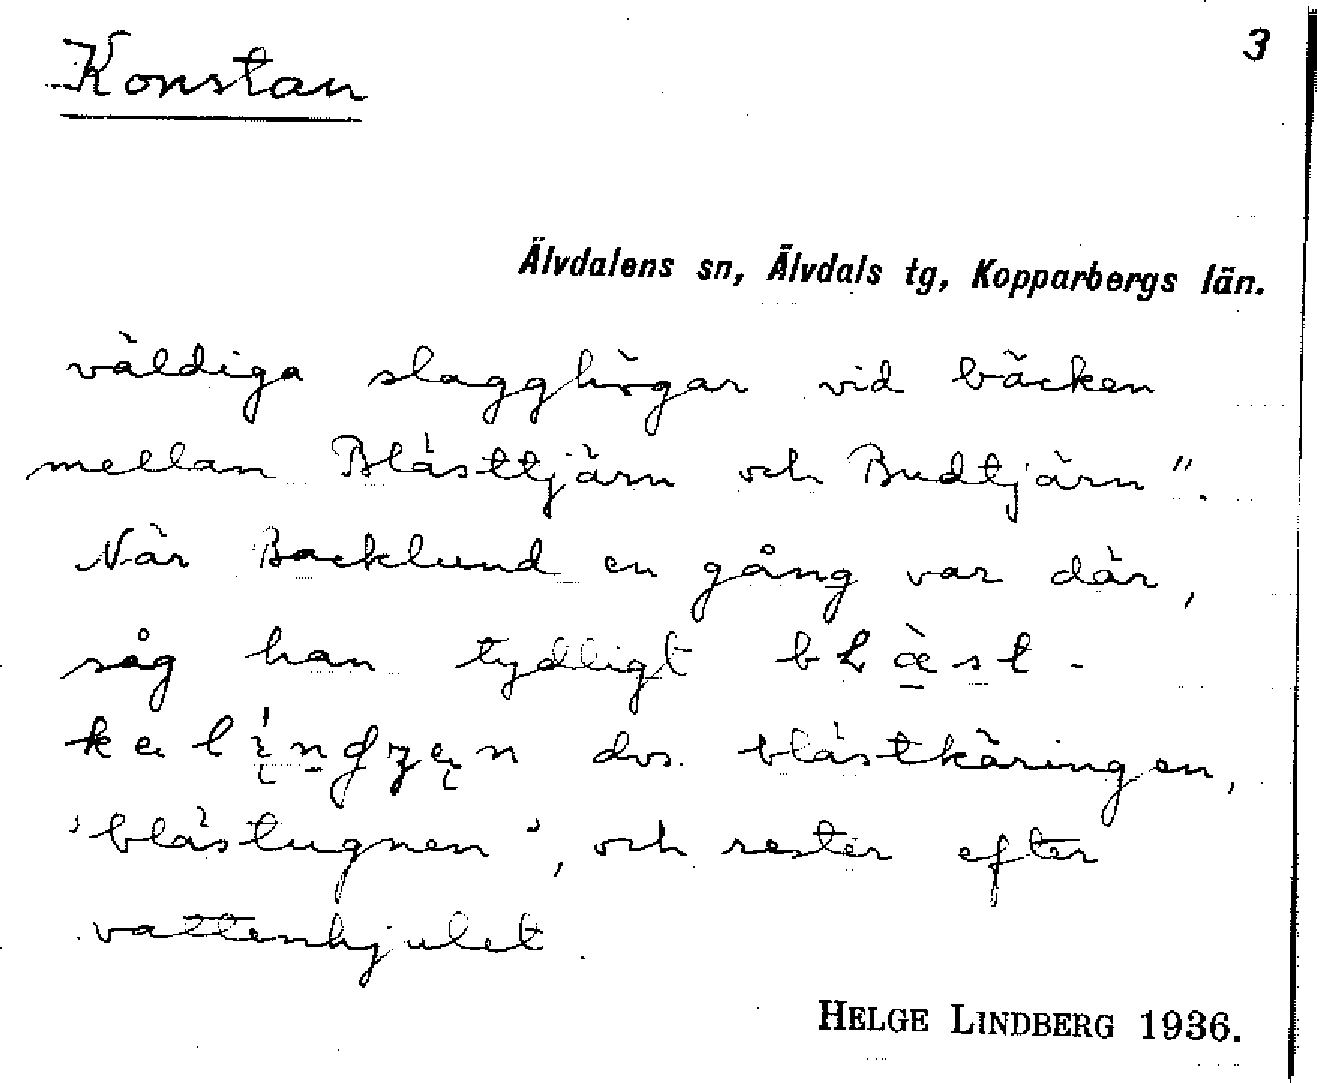 Konstan
3
Älvdalens sn, Älvdals tg, Kopparbergs län.
väldiga slagghögar vid bäcken
mellan Blästtjärn och Budtjärn".
När Backlund en gång var där,
såg han tydligt
dvs. blästkäringen,
'blästugnen', och rester efter
vattenhjulet.
HELGE LINDBERG 1936.